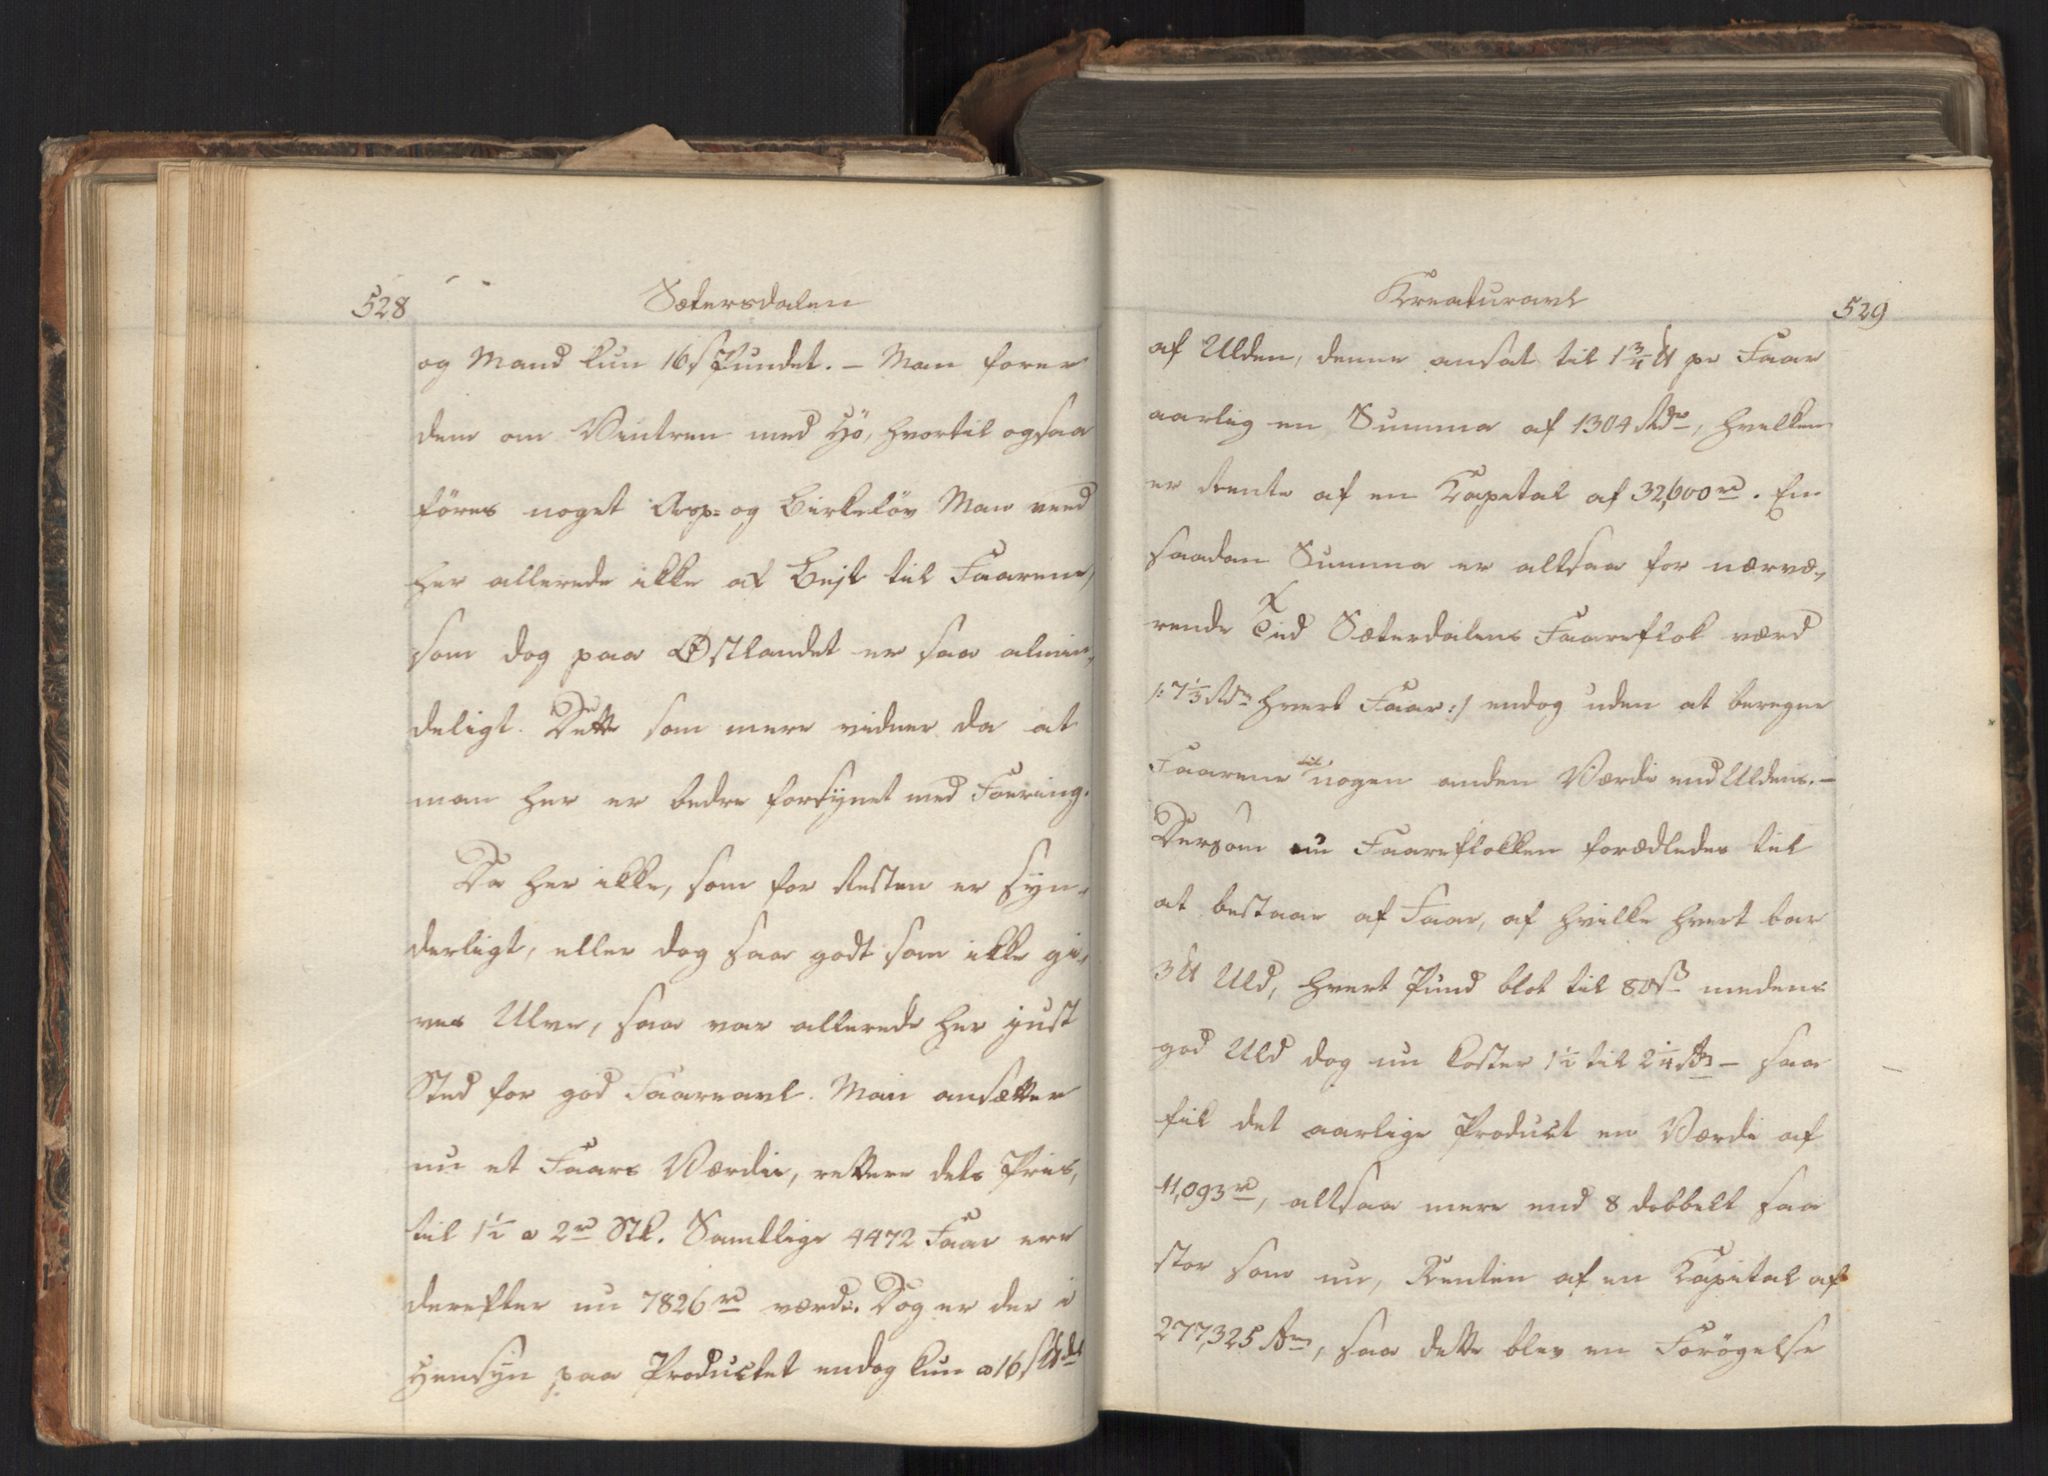 528
Sætersdalen
og Mand kun 16 s Pundet. – Man forer
dem om Vintren med Hö, hvortil ogsaa
föres noget Asp= og Birkelöv Man veed
her allerede ikke af Bejt til Faarene,
som dog paa Østlandet er saa almin-
deligt. Dette som mere vidner da at
man her er bedre forsÿnet med Foering.
Da her ikke, som for Resten er sÿn-
derligt, eller dog saa godt som ikke gi-
ves Ulve, saa var allerede her just
Sted for god Faareavl. Man ansætter
nu et Faars Værdie, rettere dets Priis,
til 1½ a 2 rd Stk. Samtlige 4472 Faar ere
derefter nu 7826 rd værdt. Dog er der i
Hensÿn paa Productet endog kun a 16 s
Kreaturavl
529
af Ulden, denne ansat til 1¾ ℔ pr Faar
aarlig en Summa af 1304 Rdr, hvilken
er Rente af en Kapital af 32,600 rd. En
saadan Summa er altsaa for nærvæ-
rende Tid Sæterdalens Faareflok værd
/: 7⅓ Rdr hvert Faar :/ endog uden at beregne
Faarene til nogen anden Værdi end Uldens. –
Dersom nu Faareflokken forædledes til
at bestaae af Faar, af hvilke hvert bar
3 ℔ Uld, hvert Pund blot til 80 s medens
god Uld dog nu koster 1½ til 2¼ Rdr – saa
fik det aarlige Product en Værdi af
11,093 rd, altsaa mere end 8 dobbelt saa
stor som nu, Renten af en Kapital af
277,325 Rdr, saa dette blev en Forögelse